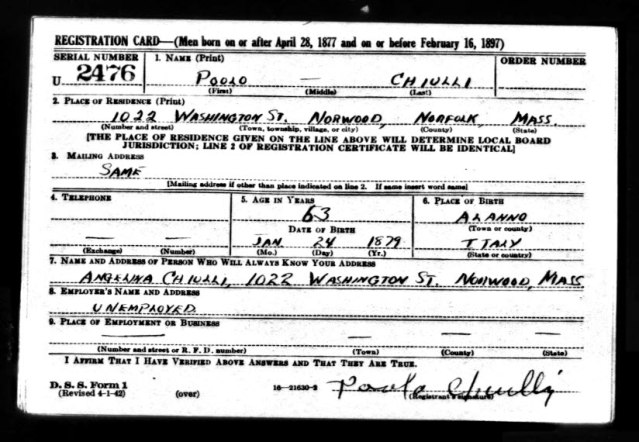 REGISTRATION CARD—(Men born on or after April 28, 1877 and on or before February 16, 1897)
SERIAL NUMBER 1. NAME (Print) ORDER NUMBER
U 2476 POOLO — CHIULLI
(First) (Middle) (Last)
2. PLACE OF RESIDENCE (Print)
1022 WASHINGTON ST. NORWOOD, NORFOLK, MASS.
(Number and street) (Town, township, village, or city) (County) (State)
[THE PLACE OF RESIDENCE GIVEN ON THE LINE ABOVE WILL DETERMINE LOCAL BOARD
JURISDICTION; LINE 2 OF REGISTRATION CERTIFICATE WILL BE IDENTICAL]
3. MAILING ADDRESS
SAME
[Mailing address if other than place indicated on line 2. If same insert word same]
4. TELEPHONE 5. AGE IN YEARS 6. PLACE OF BIRTH
63 ALANNO
DATE OF BIRTH (Town or county)
— — JAN. 24 1879 ITALY
(Exchange) (Number) (Mo.) (Day) (Yr.) (State or country)
7. NAME AND ADDRESS OF PERSON WHO WILL ALWAYS KNOW YOUR ADDRESS
ANGELINA CHIULLI, 1022 WASHINGTON ST. NORWOOD, MASS
8. EMPLOYER'S NAME AND ADDRESS
UNEMPLOYED
9. PLACE OF EMPLOYMENT OR BUSINESS
— — — —
(Number and street or R. F. D. number) (Town) (County) (State)
I AFFIRM THAT I HAVE VERIFIED ABOVE ANSWERS AND THAT THEY ARE TRUE.
D. S. S. Form 1 16—21630-2 Paolo Chiulli
(Revised 4-1-42) (over) (Registrant's signature)